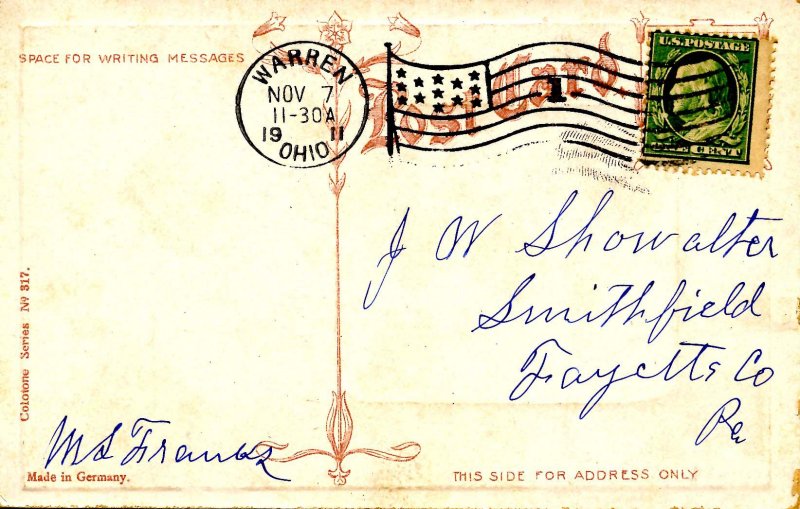 SPACE FOR WRITING MESSAGES
WARREN
NOV 7
11-30A
19 11
OHIO
Post Card.
1
U.S. POSTAGE
CENT
J W Showalter
Smithfield
Fayette Co
Pa
Colotone Series No 317.
M S Franks
Made in Germany.
THIS SIDE FOR ADDRESS ONLY